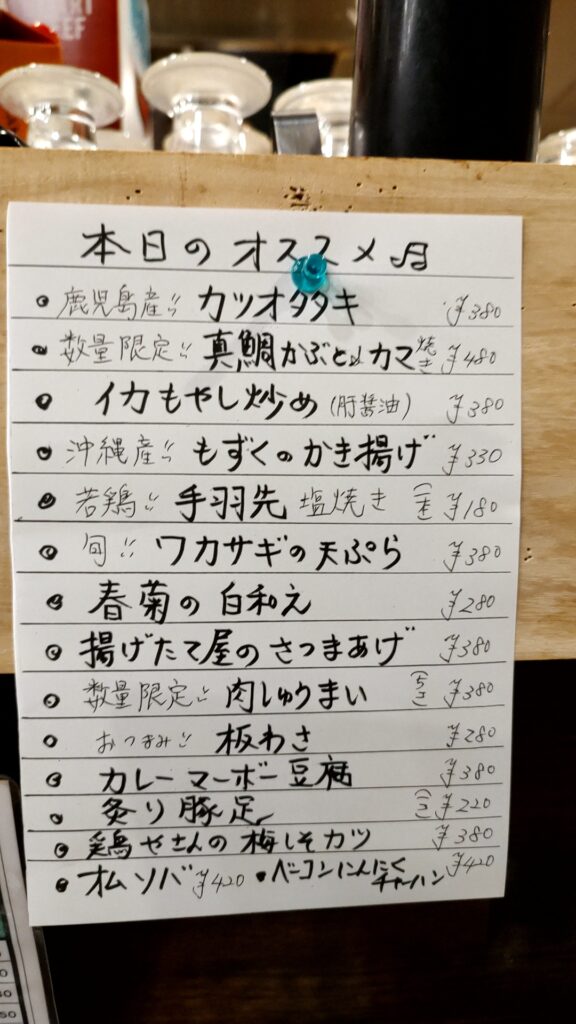 本日のオススメ♬
• 鹿児島産!! カツオタタキ ¥380
• 数量限定!! 真鯛かぶとorカマ焼き ¥480
• イカもやし炒め(肝醤油) ¥380
• 沖縄産!! もずくのかき揚げ ¥330
• 若鶏!! 手羽先 塩焼き (一本) ¥180
• 旬!! ワカサギの天ぷら ¥380
• 春菊の白和え ¥280
• 揚げたて屋のさつまあげ ¥380
• 数量限定!! 肉しゅうまい ¥380
• おつまみ!! 板わさ ¥280
• カレーマーボー豆腐 ¥380
• 炙り豚足 ¥220
• 鶏やさんの梅しそカツ ¥380
• オムソバ ¥420 • ベーコンにんにくチャーハン ¥420